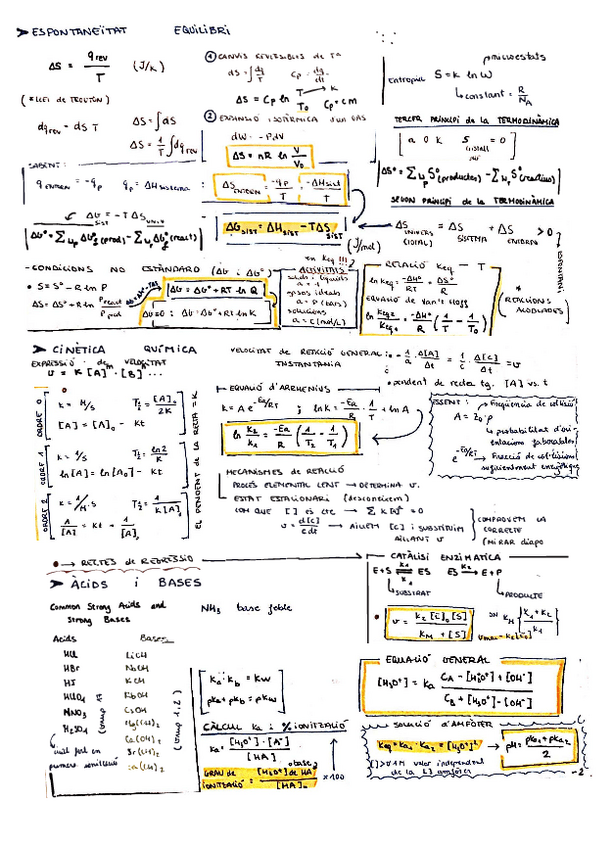 ➤ ESPONTANEÏTAT EQUILIBRI
ΔS = q rev / T (J/K)
(*LEI de TROUTON)
dq rev = dS T
ΔS = ∫dS
ΔS = 1/T ∫dq rev
① CANVIS REVERSIBLES de Tª
dS = ∫ dq/T Cp = dq/dt
ΔS = Cp ln T/T₀
② EXPANSIÓ ISOTÈRMICA d'un GAS
dW = -PdV
ΔS = nR ln V/V₀
microestats
entropia S = K ln W
constant = R/N_A
TERCER PRINCIPI de la TERMODINÀMICA
a 0 K S = 0
ΔS° = Σ νp S°(productes) - Σ νr S°(reactius)
SEGON PRINCIPI de la TERMODINÀMICA
ΔS UNIVERS (TOTAL) = ΔS SISTEMA + ΔS ENTORN > 0
ESPONTANI
SABENT:
q ENTORN = -qp qp = ΔH SISTEMA
ΔS ENTORN = -qp/T = -ΔH sist/T
ΔG SIST = -TΔS UNIV
ΔG° = Σ νp ΔG°f (prod) - Σ νr ΔG°f (react)
ΔG SIST = ΔH SIST - TΔS SIST
(J/mol)
- CONDICIONS NO ESTÀNDARD (ΔG ≠ ΔG°)
• S = S° - R ln P
ΔS = ΔS° + R ln P react / P prod
ΔG = ΔG° + RT ln Q
ΔG=0 : ΔG = ΔG° + RT ln K
en Keq !!!
ACTIVITATS
sòlids i líquids
a = 1
gasos ideals
a = P (bars)
solucions
a = c (mol/L)
RELACIÓ Keq — T
ln Keq = -ΔH°/RT + ΔS°/R
EQUACIÓ de Van't Hoff
ln Keq₂/Keq₁ = -ΔH°/R (1/T - 1/T₀)
* REACCIONS ACOBLADES
➤ CINÈTICA QUÍMICA
EXPRESSIÓ de VELOCITAT
v = K [A]ᵐ · [B]ⁿ ...
VELOCITAT DE REACCIÓ GENERAL i INSTANTÀNIA
- 1/a Δ[A]/Δt = 1/c Δ[C]/Δt = v
• pendent de recta tg. [A] vs. t
ORDRE 0
K = M/s T½ = [A]₀/2K
[A] = [A]₀ - Kt
ORDRE 1
K = 1/s T½ = ln2/K
ln[A] = ln[A₀] - Kt
ORDRE 2
K = 1/M·s T½ = 1/K[A]₀
1/[A] = Kt + 1/[A]₀
EL PENDENT DE LA RECTA = K
EQUACIÓ D'ARRHENIUS
K = A e^-Ea/RT ; lnK = -Ea/R · 1/T + lnA
ln K₂/K₁ = -Ea/R (1/T₂ - 1/T₁)
ESSENT: Freqüència de col·lisió
A = Z₀·p
probabilitat d'orientacions favorables
e^-Ea/RT → Fracció de col·lisions suficientment energètiques
MECANISMES de REACCIÓ
PROCÉS ELEMENTAL LENT → DETERMINA v.
ESTAT ESTACIONARI (desconeixem)
COM QUE [ ] ÉS CTE → Σ K [A]ⁿ = 0
v = d[C]/c dt → AÏLLEM [C] i SUBSTITUÏM AÏLLANT v
COMPROVEM LA CORRECTE
(MIRAR diapo
• → RECTES de REGRESSIÓ
➤ ÀCIDS i BASES
Common Strong Acids and Strong Bases
NH₃ base feble
Acids Bases
HCl LiOH
HBr NaOH
HI KOH
HClO₄ RbOH
HNO₃ CsOH
H₂SO₄ Mg(OH)₂
Ca(OH)₂
Sr(OH)₂
Ba(OH)₂
(Grup 1 i 2)
primera ionització
Ka · Kb = Kw
pKa + pKb = pKw
CÀLCUL Ka i % IONITZACIÓ
Ka = [H₃O⁺]·[A⁻] / [HA]
GRAU DE IONITZACIÓ = [H₃O⁺] de HA / [HA]₀ x100
o base
CATÀLISI ENZIMÀTICA
E+S ⇌ ES ES → E+P
SUBSTRAT
PRODUCTE
v = K₂ [E]₀ [S] / K_M + [S]
on K_M {K₋₁ + K₂ / K₁}
v max = K₂[E]₀
EQUACIÓ GENERAL
[H₃O⁺] = Ka C_A - [H₃O⁺] + [OH⁻] / C_B + [H₃O⁺] - [OH⁻]
SOLUCIÓ d'AMFÒTER
Keq = Ka₁ · Ka₂ = [H₃O⁺]² → pH = pKa₁ + pKa₂ / 2
[ ] > 0'1M valor independent de la [ ] amfòter
- 2